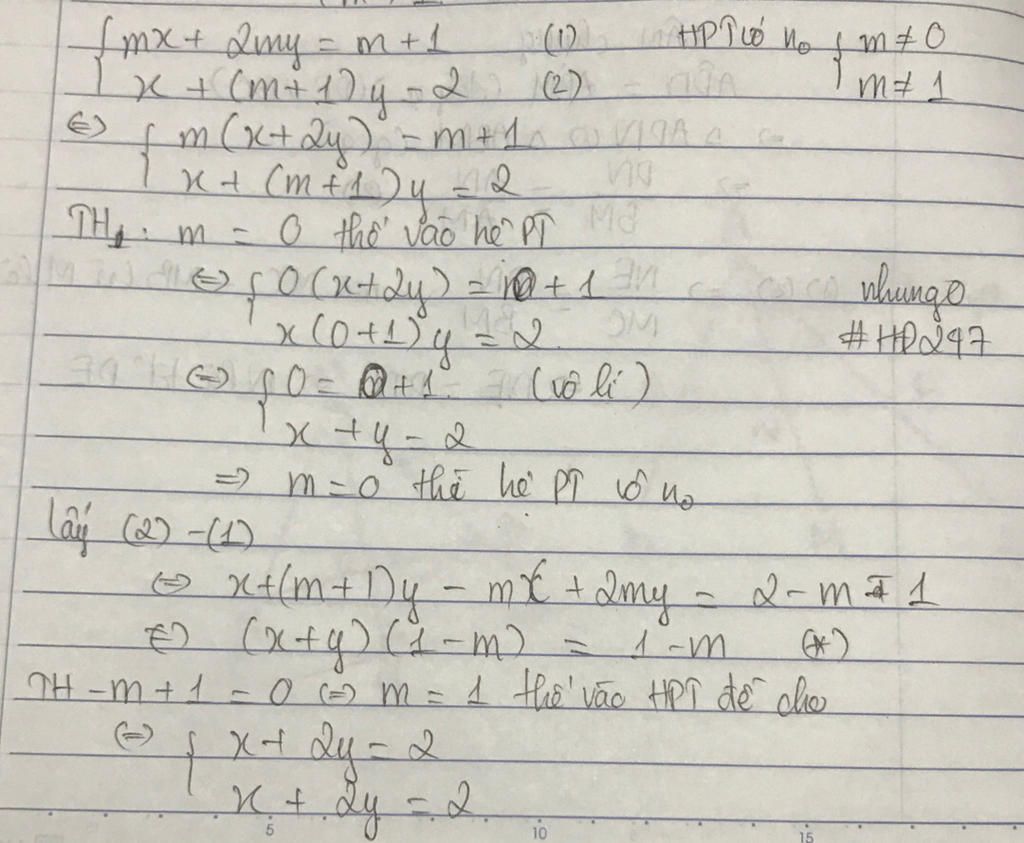 { mx + 2my = m + 1 (1) HPT có n₀ { m ≠ 0
x + (m+1)y = 2 (2) m ≠ 1
⇔ { m(x+2y) = m+1
x + (m+1)y = 2
TH₁. m = 0 thế vào hệ PT
⇔ { 0(x+2y) = 0 + 1 nhung0
x(0+1)y = 2 #HD247
⇔ { 0 = 0+1 (vô lí)
x + y = 2
⇒ m = 0 thì hệ PT vô n₀
lấy (2) - (1)
⇔ x+(m+1)y - mx + 2my = 2 - m - 1
⇔ (x+y)(1-m) = 1-m (*)
TH -m+1 = 0 ⇔ m = 1 thế vào HPT đề cho
⇔ { x + 2y = 2
x + 2y = 2
5 10 15